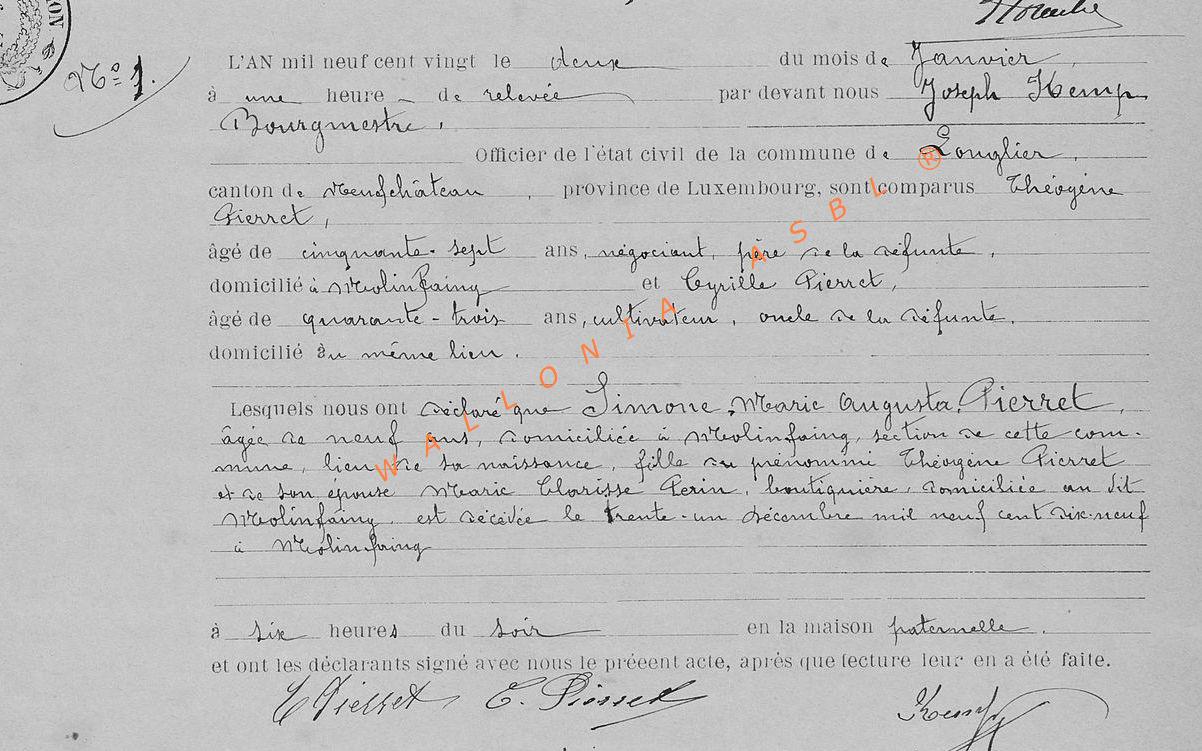 Nº 1.
L'AN mil neuf cent vingt le deux du mois de Janvier,
à une heure de relevée par devant nous Joseph Kemp
Bourgmestre,
Officier de l'état civil de la commune de Longlier,
canton de Neufchâteau, province de Luxembourg, sont comparus Théogène
Pierret,
âgé de cinquante-sept ans, négociant, père de la défunte,
domicilié à Molinfaing et Cyrille Pierret,
âgé de quarante-trois ans, cultivateur, oncle de la défunte,
domicilié au même lieu.
Lesquels nous ont déclaré que Simone, Marie Augusta, Pierret,
âgée de neuf ans, domiciliée à Molinfaing, section de cette com-
mune, lieu de sa naissance, fille du prénommé Théogène Pierret
et de son épouse Marie Clarisse Perin, boutiquière, domiciliée au dit
Molinfaing, est décédée le trente-un décembre mil neuf cent dix-neuf
à Molinfaing
à six heures du soir en la maison paternelle.
et ont les déclarants signé avec nous le préeent acte, après que lecture leur en a été faite.
C Pierret T. Pierret Kemp
WALLONIA ASBL ®